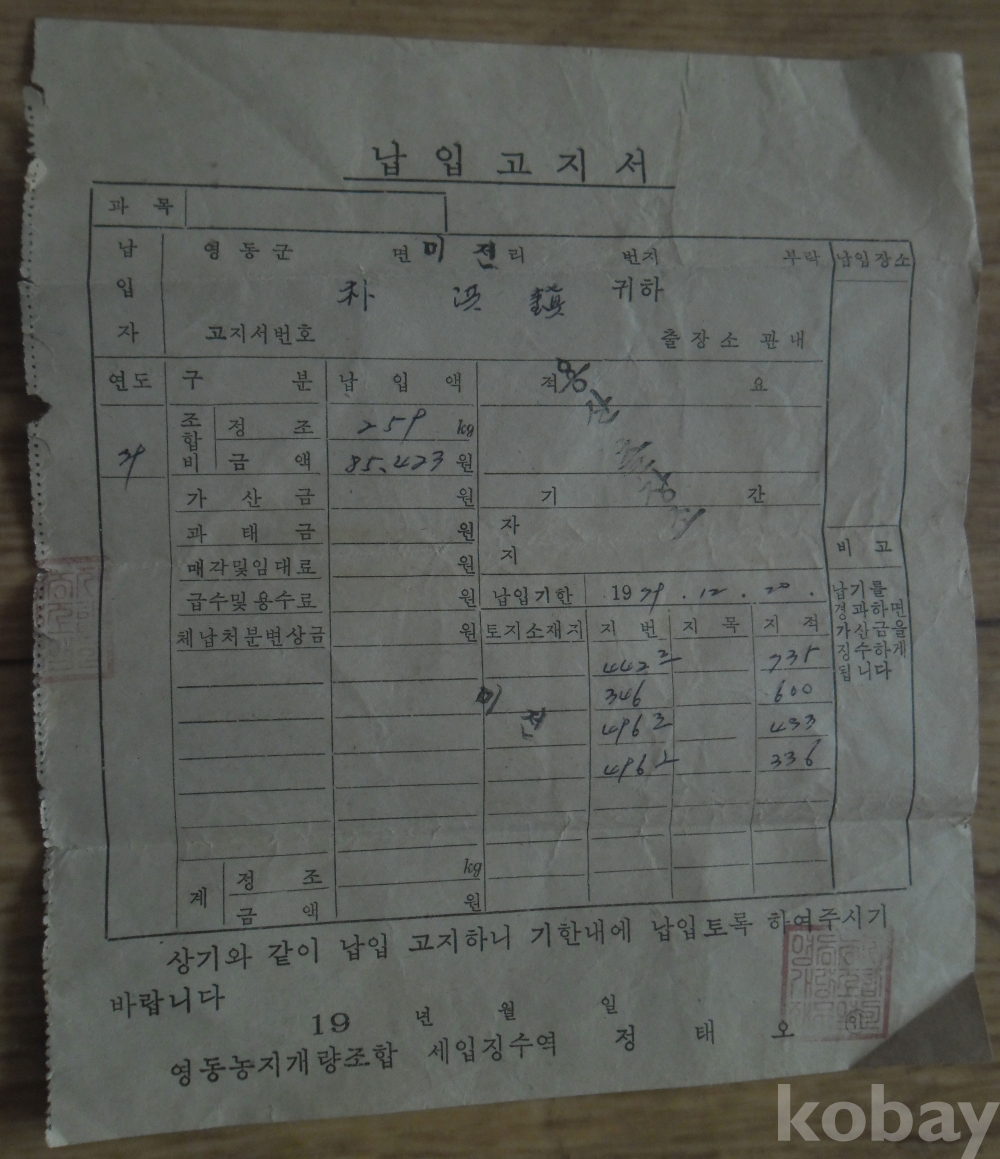 납입고지서
과목
납입자 영동군 면 미전리 번지 부락 납입장소
朴 洪 鎭 귀하
고지서번호 출장소 관내
연도 구분 납입액 적요
조합비 정조 259 kg
79 금액 85.423 원
가산금 원 기간
과태금 원 자
매각및임대료 원 지
비고
급수및용수료 원 납입기한 1979. 12. 20.
체납처분변상금 원 토지소재지 지번 지목 지적
납기를
경과하면
가산금을
징수하게
됩니다
442 2 735
346 600
미전 496 3 433
496 2 336
계 정조 kg
금액 원
상기와 같이 납입 고지하니 기한내에 납입토록 하여주시기
바랍니다
19 년 월 일
영동농지개량조합 세입징수역 정태오
kobay